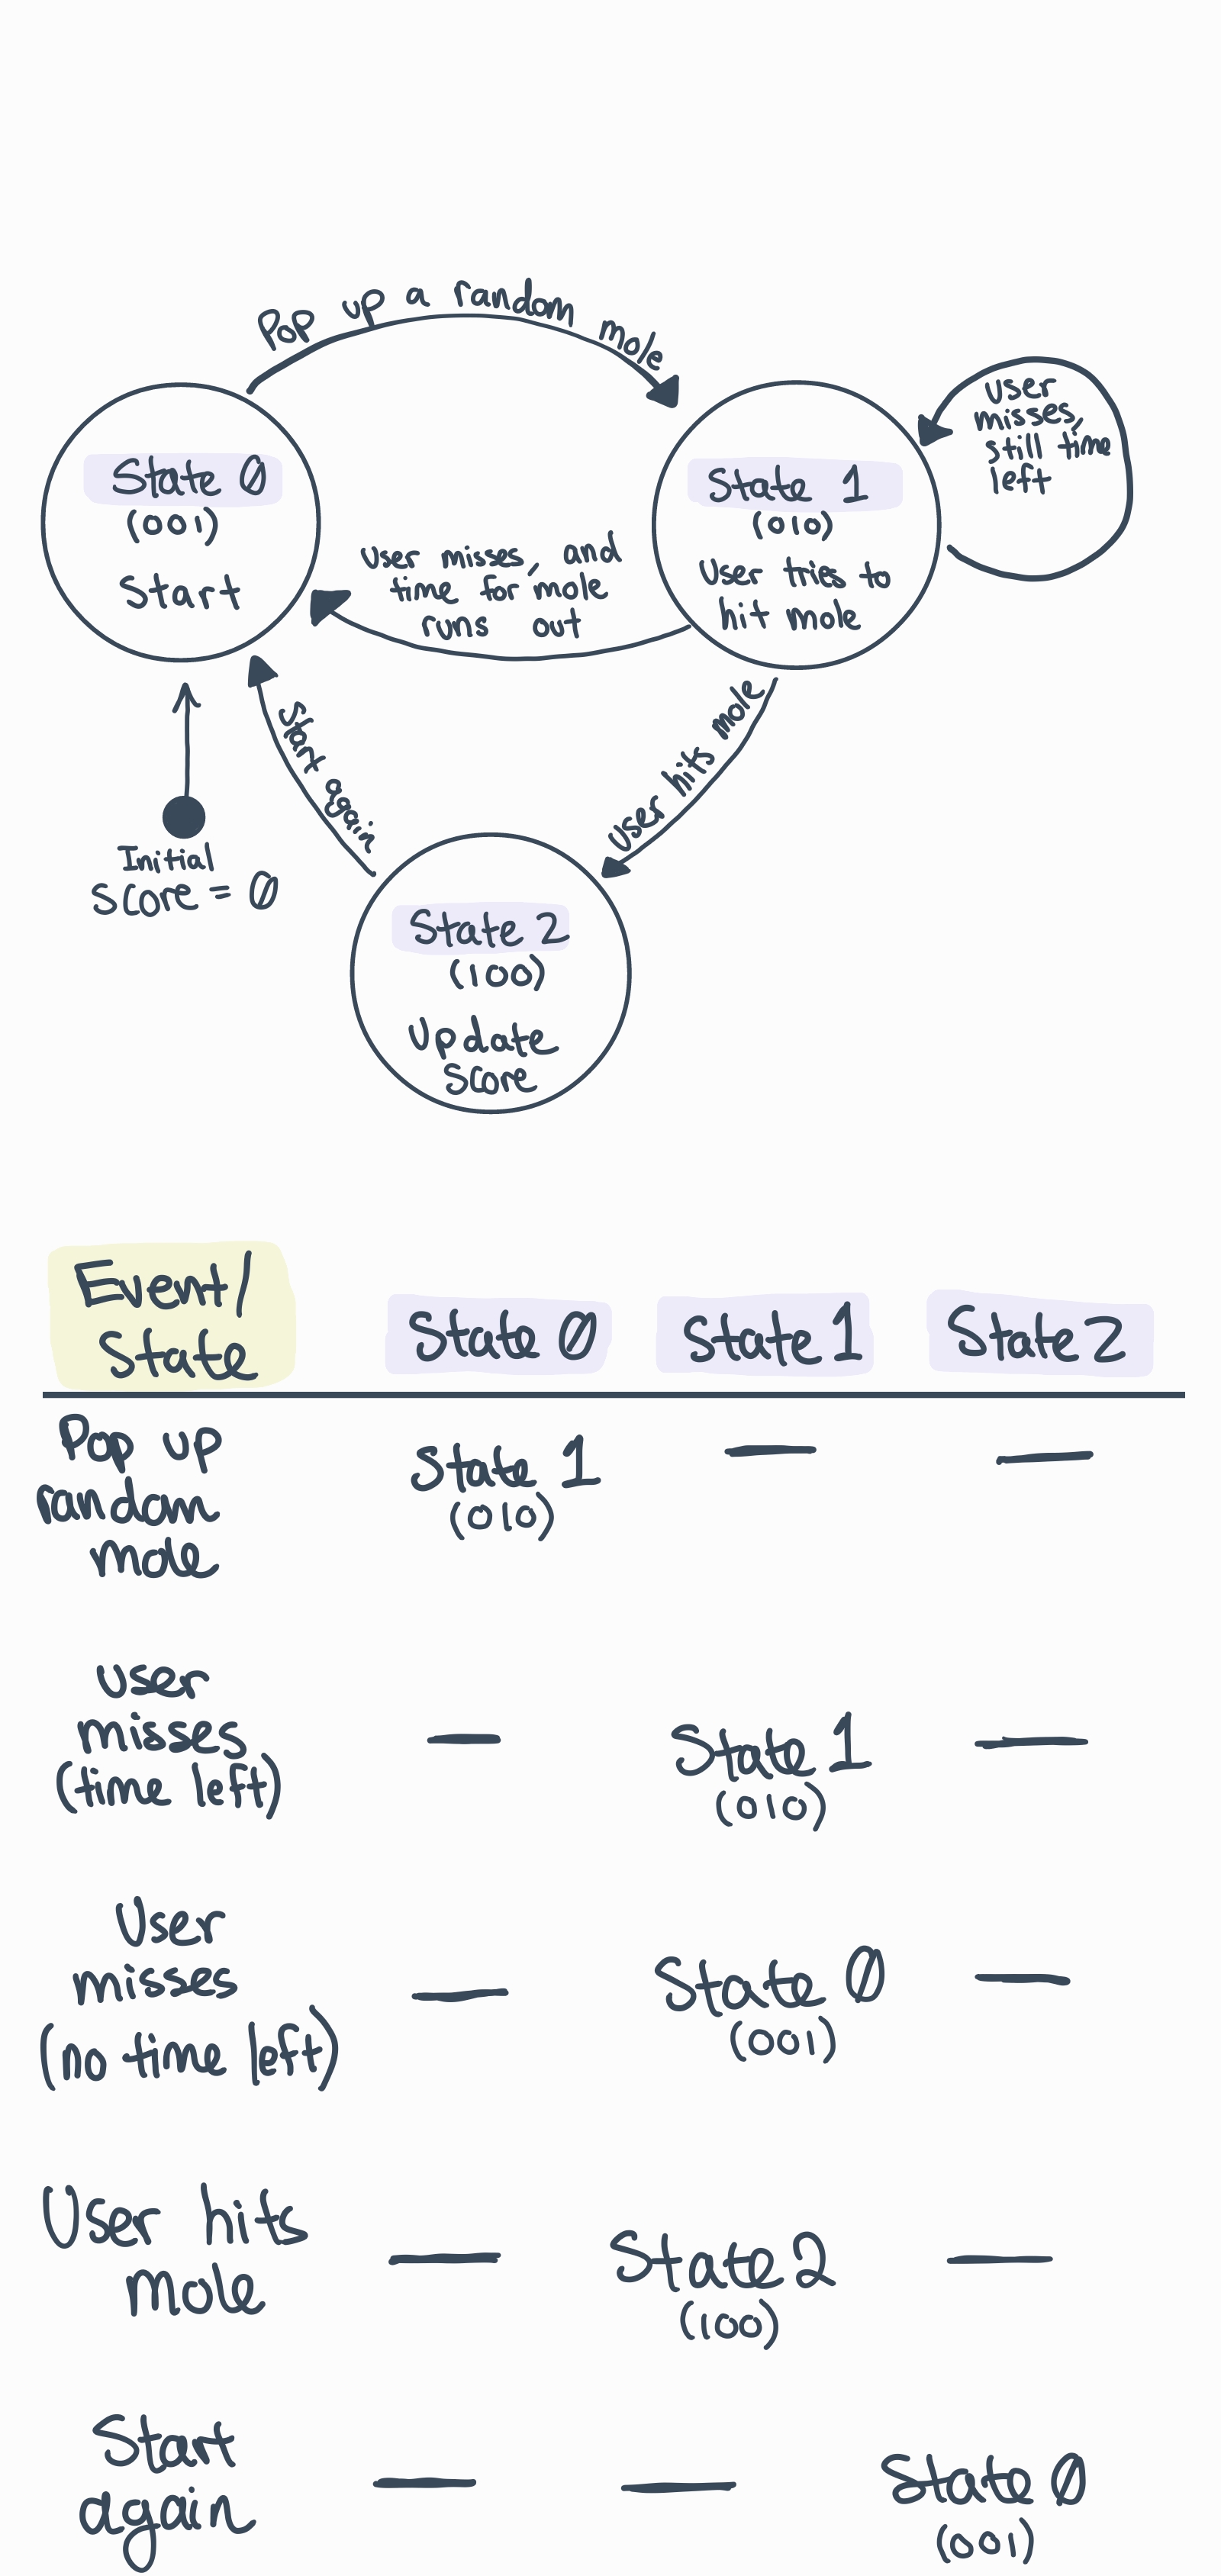 Pop up a random mole
State 0
(001)
Start
State 1
(010)
User tries to
hit mole
User
misses,
still time
left
User misses, and
time for mole
runs out
Start again
User hits mole
Initial
Score = 0
State 2
(100)
Update
Score
Event/
State
State 0
State 1
State 2
Pop up
random
mole
State 1
(010)
—
—
User
misses
(time left)
—
State 1
(010)
—
User
misses
(no time left)
—
State 0
(001)
—
User hits
mole
—
State 2
(100)
—
Start
again
—
—
State 0
(001)